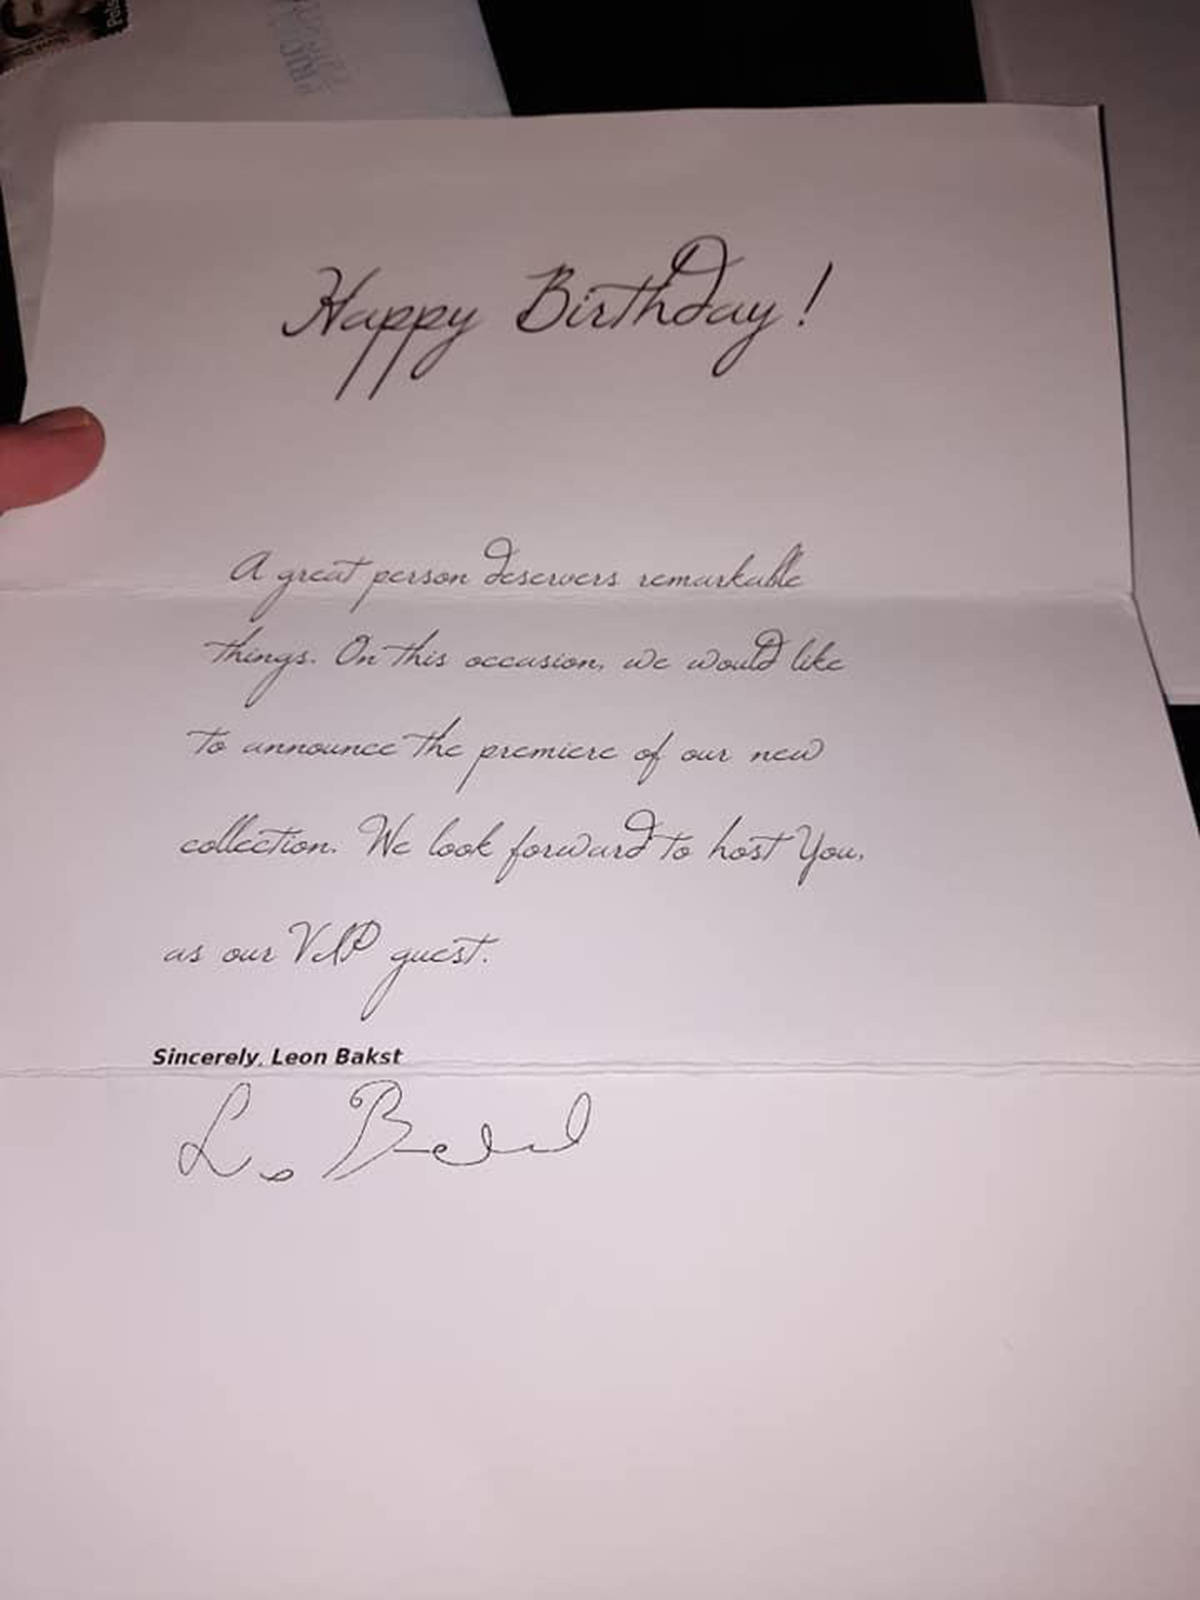 Happy Birthday!
A great person deservers remarkable
things. On this occasion, we would like
to announce the premiere of our new
collection. We look forward to host You,
as our VIP guest.
Sincerely, Leon Bakst